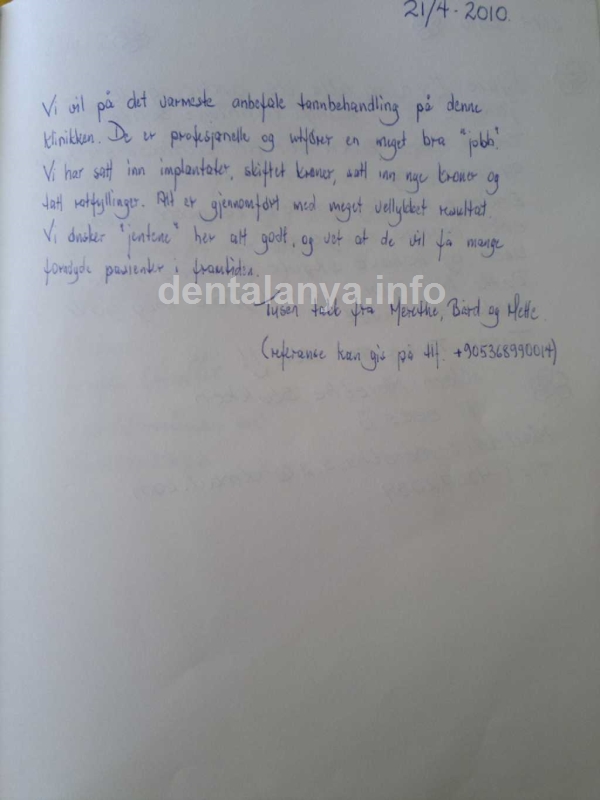 21/4-2010.
Vi vil på det varmeste anbefale tannbehandling på denne
klinikken. De er profesjonelle og utfører en meget bra "jobb".
Vi har satt inn implantater, skiftet kroner, satt inn nye kroner og
tatt rotfyllinger. Alt er gjennomført med meget vellykket resultat.
Vi ønsker "jentene" her alt godt, og vet at de vil få mange
fornøyde pasienter i framtiden.
dentalanya.info
Tusen takk fra Merethe, Bård og Mette.
(referanse kan gis på tlf. +905368990014)